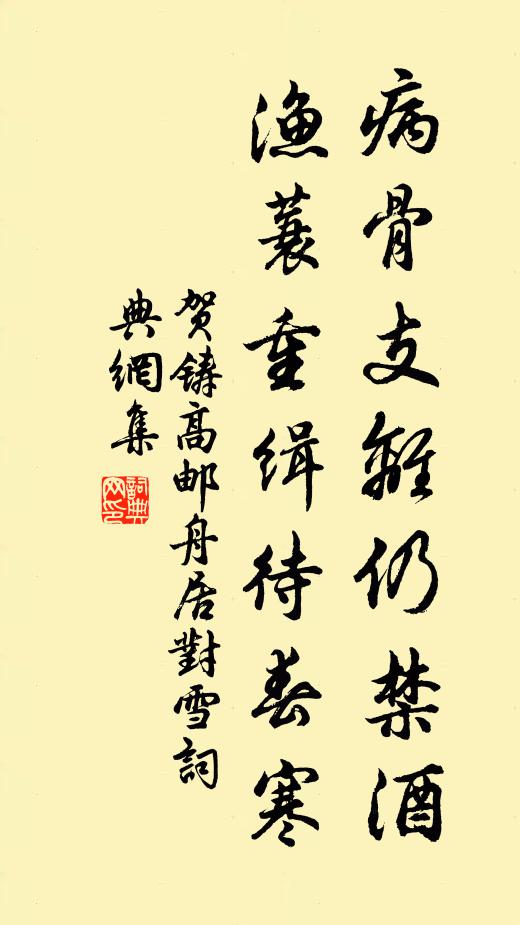 病骨支離仍禁酒
漁蓑重緝待春寒
贺鑄高邮舟居對雪詞
典網集
詞典網印